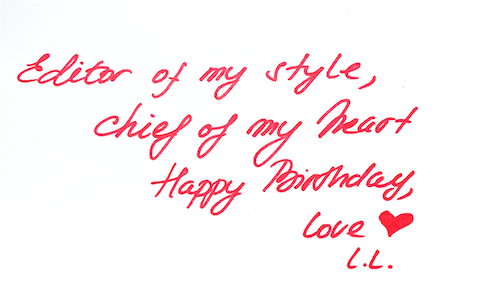 Editor of my style,
chief of my heart
Happy Birthday,
love ♥
L.L.